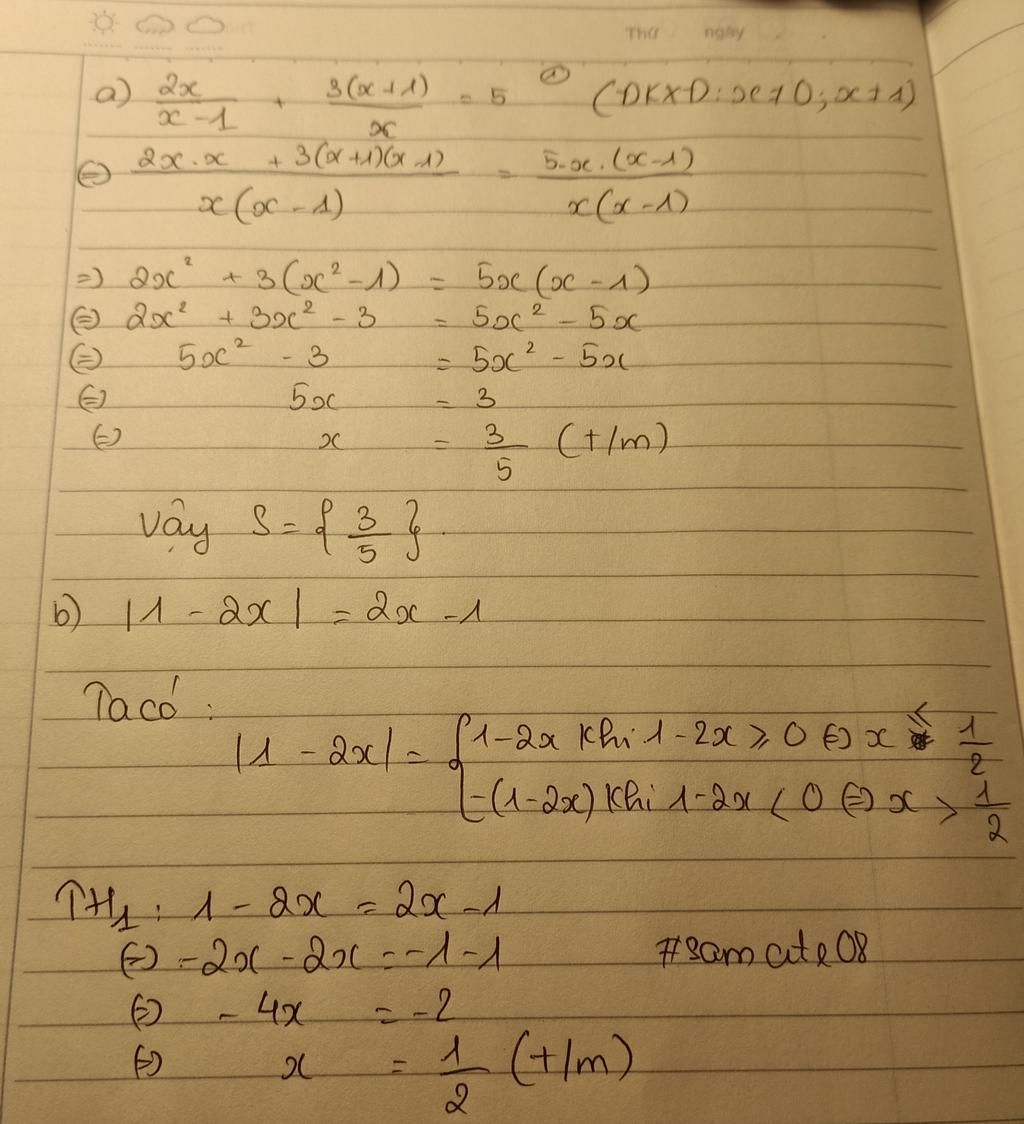 Thứ ngày
a) 2x/(x-1) + 3(x+1)/x = 5 (1) (ĐKXĐ: x≠0; x≠1)
⇔ (2x.x + 3(x+1)(x-1))/(x(x-1)) = 5.x.(x-1)/(x(x-1))
⇒ 2x² + 3(x²-1) = 5x(x-1)
⇔ 2x² + 3x² - 3 = 5x² - 5x
⇔ 5x² - 3 = 5x² - 5x
⇔ 5x = 3
⇔ x = 3/5 (t/m)
Vậy S = {3/5}.
b) |1 - 2x| = 2x - 1
Ta có:
|1 - 2x| = { 1-2x khi 1-2x ≥ 0 ⇔ x ≤ 1/2
-(1-2x) khi 1-2x < 0 ⇔ x > 1/2
TH1: 1 - 2x = 2x - 1
⇔ -2x - 2x = -1 - 1
#samcute08
⇔ -4x = -2
⇔ x = 1/2 (t/m)